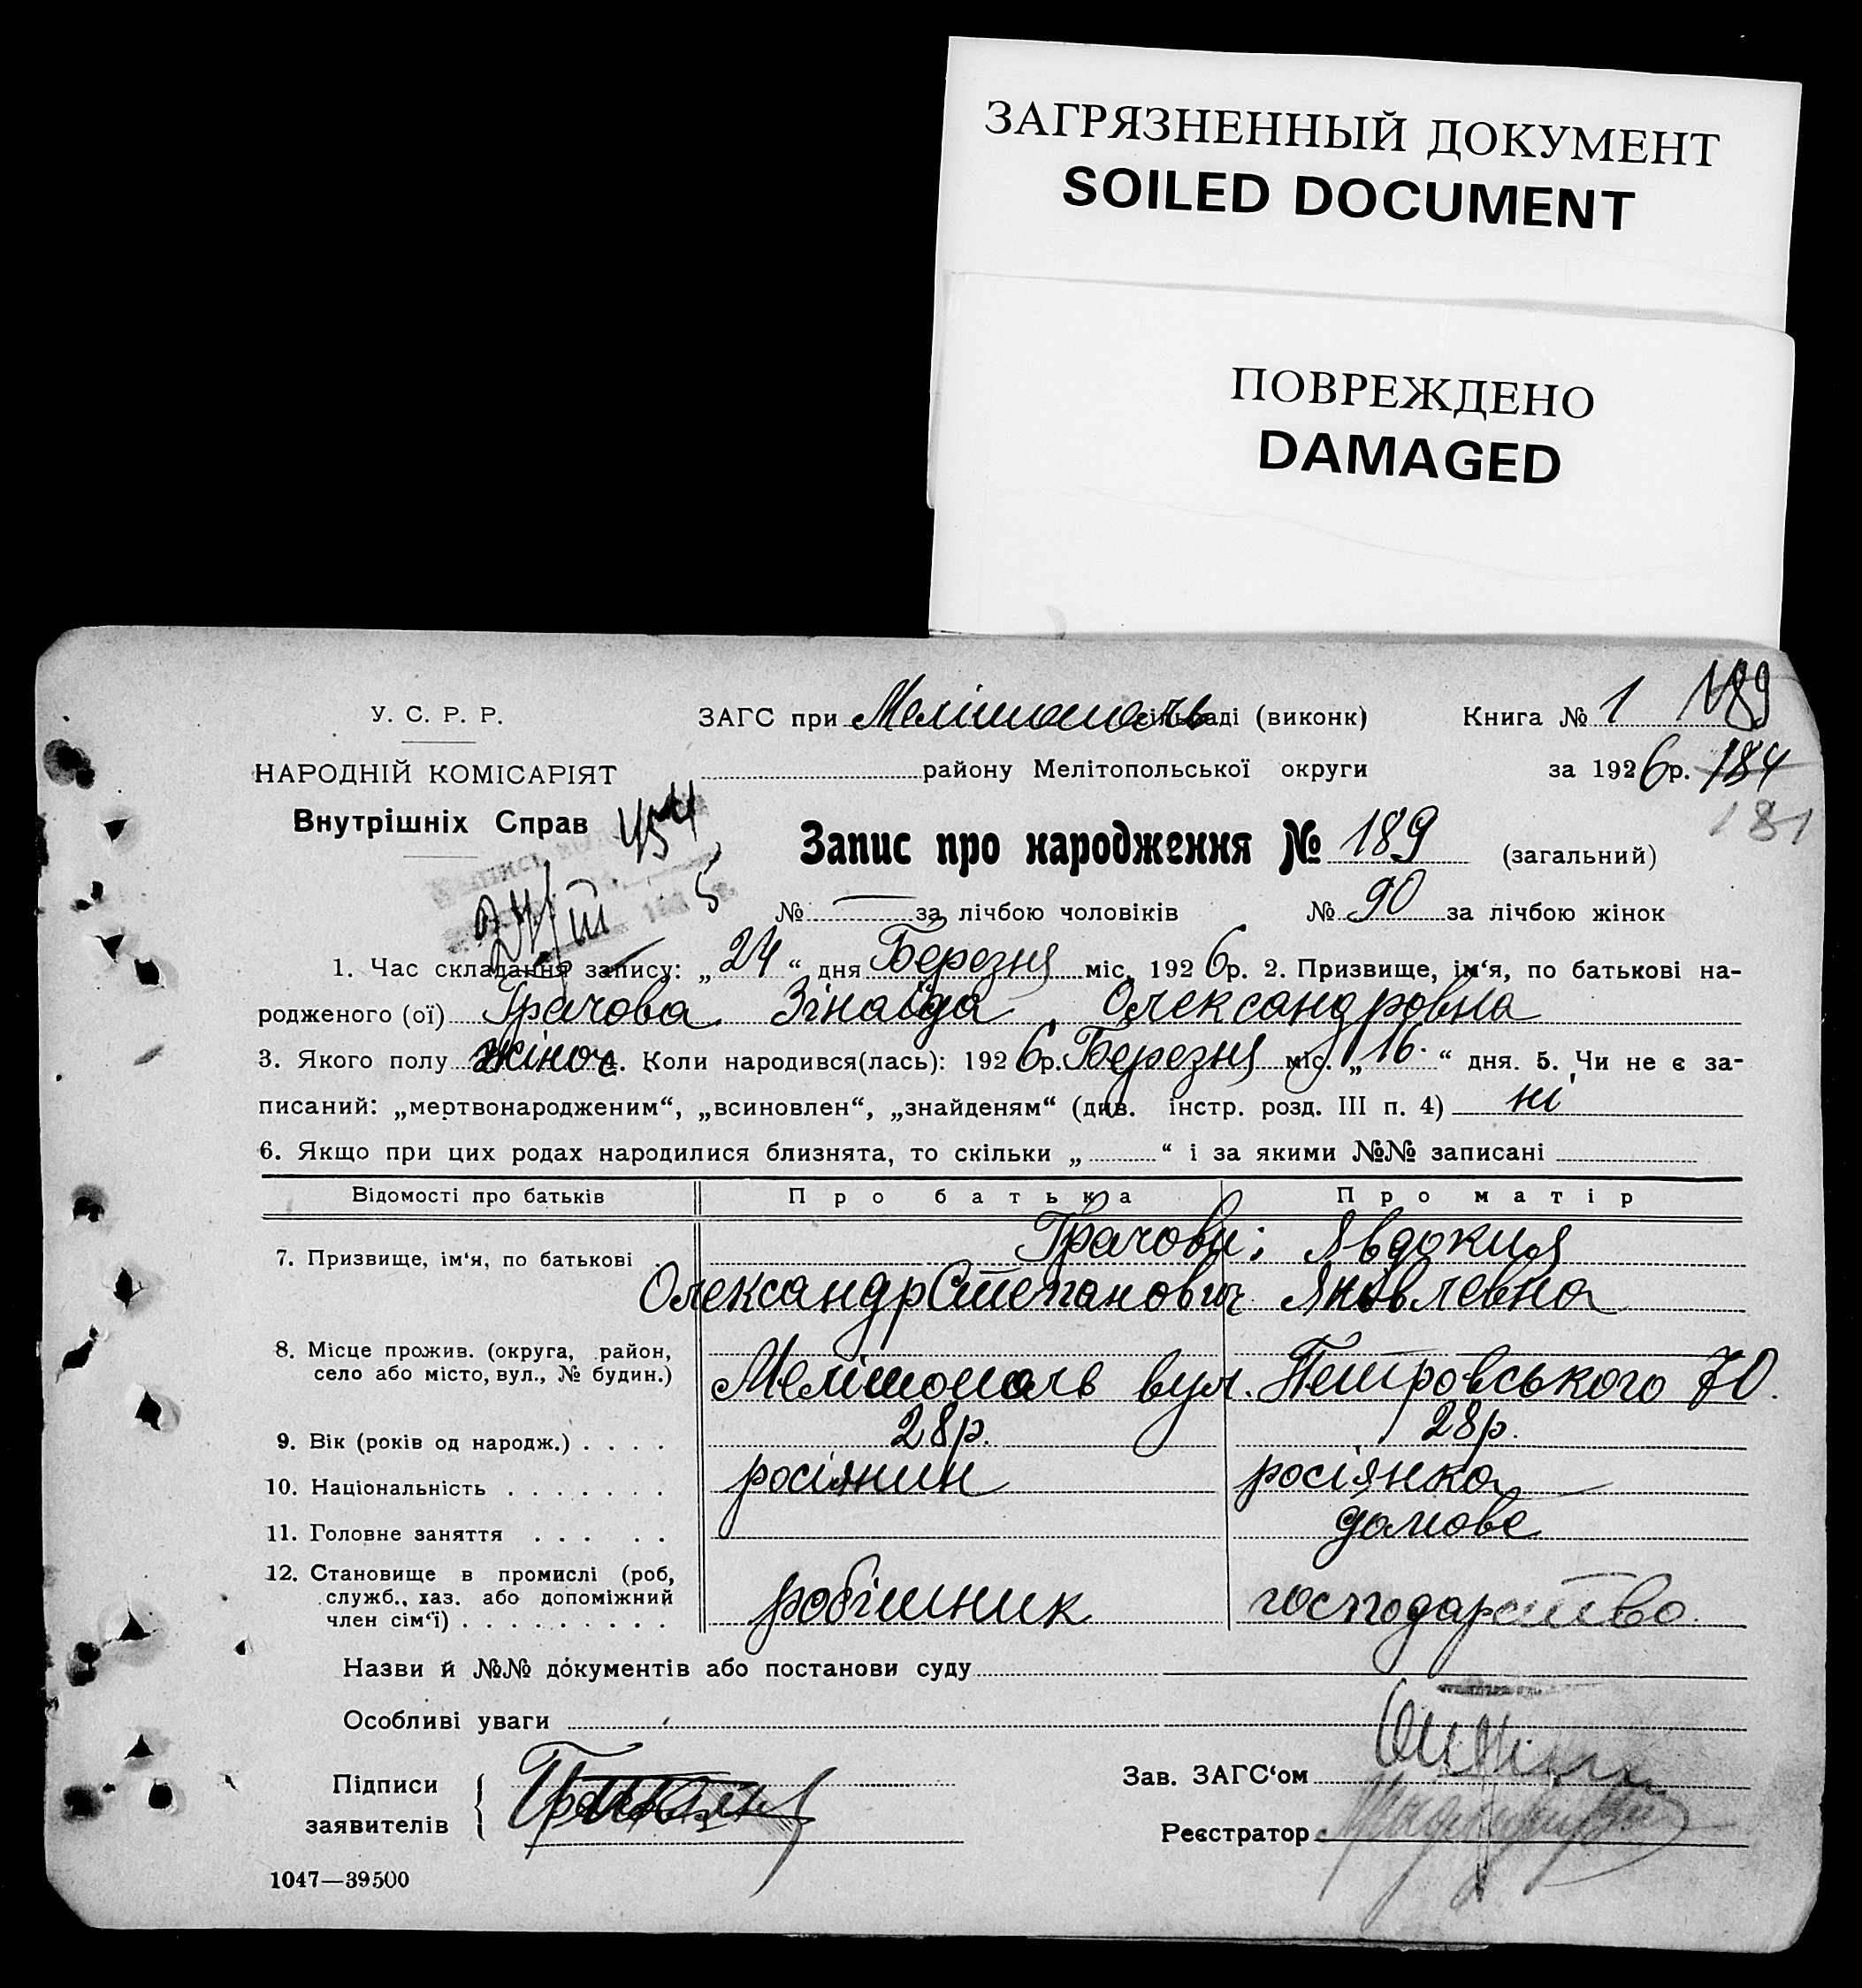 ЗАГРЯЗНЕННЫЙ ДОКУМЕНТ
SOILED DOCUMENT
ПОВРЕЖДЕНО
DAMAGED
У. С. Р. Р.
НАРОДНІЙ КОМІСАРІЯТ
Внутрішніх Справ
454
24/III 5
ЗАГС при Мелітополь сільраді (виконк) Книга № 1 189
району Мелітопольської округи за 1926р. 184
181
Запис про народження № 189 (загальний)
№ — за лічбою чоловіків № 90 за лічбою жінок
1. Час складання запису: „24“ дня Березня міс. 1926р. 2. Призвище, ім‘я, по батькові на-
родженого (ої) Грачова Зінаїда Олександровна
3. Якого полу жіноч. 4. Коли народився(лась): 1926р. Березня міс. „16“ дня. 5. Чи не є за-
писаний: „мертвонародженим“, „всиновлен“, „знайденям“ (див. інстр. розд. III п. 4) ні
6. Якщо при цих родах народилися близнята, то скільки „ “ і за якими №№ записані
Відомості про батьків Про батька Про матір
7. Призвище, ім‘я, по батькові Грачови: Явдокия
Олександр Степанович Яковлевна
8. Місце прожив. (округа, район,
село або місто, вул., № будин.) Мелітополь вул. Петровського 70.
9. Вік (років од народж.) . . . . 28р. 28р.
10. Національність . . . . . . . росіянин росіянка
11. Головне заняття . . . . . домове
12. Становище в промислі (роб,
служб., хаз. або допоміжний
член сім‘ї) . . . . . . . . . робітник господарство.
Назви й №№ документів або постанови суду
Особливі уваги
Підписи
заявителів
Зав. ЗАГС‘ом
Реєстратор
1047—39500